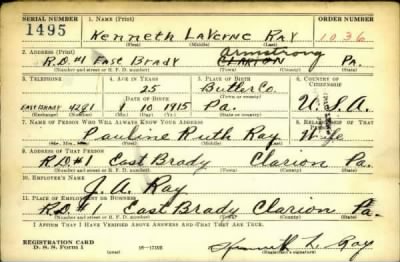 SERIAL NUMBER 1. NAME (Print) ORDER NUMBER
1495 Kenneth LaVerne Ray 1036
(First) (Middle) (Last)
2. ADDRESS (Print)
Armstrong
R.D.#1 East Brady CLARION Pa.
(Number and street or R. F. D. number) (Town) (County) (State)
3. TELEPHONE 4. AGE IN YEARS 5. PLACE OF BIRTH 6. COUNTRY OF CITIZENSHIP
25 Butler Co.
(Town or county)
DATE OF BIRTH
EAST BRADY 4281 1 10 1915 Pa. U.S.A.
(Exchange) (Number) (Mo.) (Day) (Yr.) (State or country)
7. NAME OF PERSON WHO WILL ALWAYS KNOW YOUR ADDRESS 8. RELATIONSHIP OF THAT PERSON
Pauline Ruth Ray Wife
(First) (Middle) (Last)
9. ADDRESS OF THAT PERSON
R.D.#1 East Brady Clarion Pa.
(Number and street or R. F. D. number) (Town) (County) (State)
10. EMPLOYER'S NAME
J. A. Ray
11. PLACE OF EMPLOYMENT OR BUSINESS
R.D.#1 East Brady Clarion Pa.
(Number and street or R. F. D. number) (Town) (County) (State)
I AFFIRM THAT I HAVE VERIFIED ABOVE ANSWERS AND THAT THEY ARE TRUE.
REGISTRATION CARD
D. S. S. Form 1 Kenneth L. Ray
(Registrant's signature)